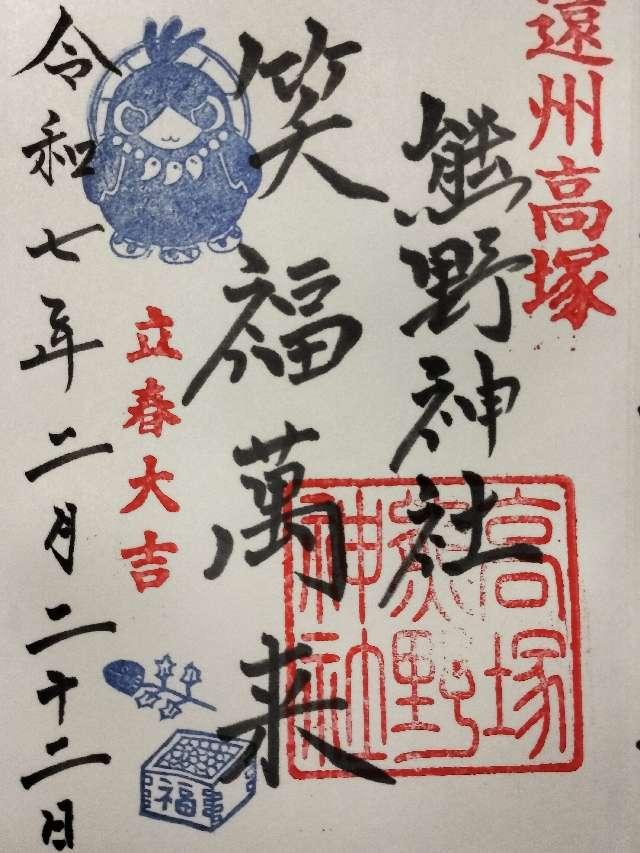 遠州高塚
熊野神社
高塚
熊野
神社
笑福萬来
立春大吉
福
令和七年二月二十二日